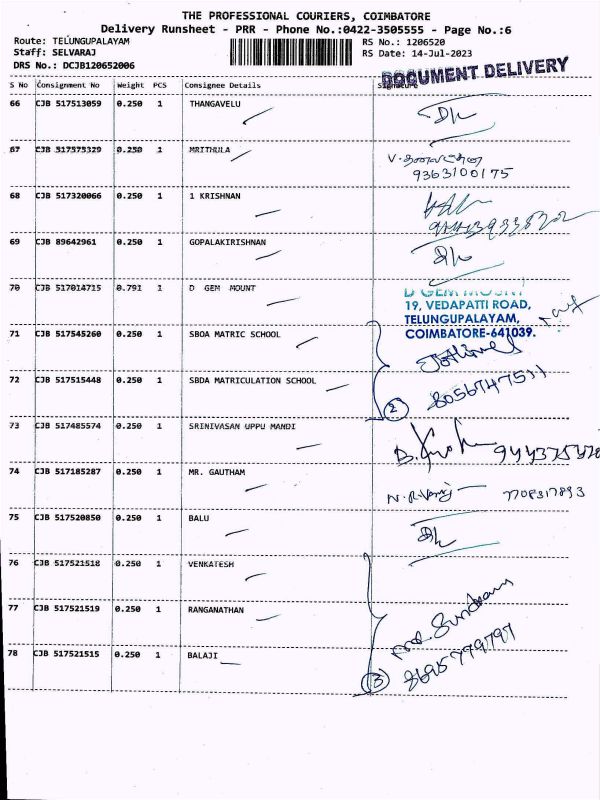 THE PROFESSIONAL COURIERS, COIMBATORE
Delivery Runsheet - PRR - Phone No.:0422-3505555 - Page No.:6
Route: TELUNGUPALAYAM RS No.: 1206520
Staff: SELVARAJ RS Date: 14-Jul-2023
DRS No.: DCJB120652006
DOCUMENT DELIVERY
S No Consignment No Weight PCS Consignee Details Signature
66 CJB 517513059 0.250 1 THANGAVELU
67 CJB 517573329 0.250 1 MRITHULA
9363100175
68 CJB 517320066 0.250 1 1 KRISHNAN
69 CJB 89642961 0.250 1 GOPALAKIRISHNAN
70 CJB 517014715 0.791 1 D GEM MOUNT
D GEM MOUNT
19, VEDAPATTI ROAD,
TELUNGUPALAYAM,
COIMBATORE-641039.
71 CJB 517545260 0.250 1 SBOA MATRIC SCHOOL
72 CJB 517515448 0.250 1 SBDA MATRICULATION SCHOOL
8056747511
2
73 CJB 517485574 0.250 1 SRINIVASAN UPPU MANDI
74 CJB 517185287 0.250 1 MR. GAUTHAM
7708317893
75 CJB 517520850 0.250 1 BALU
76 CJB 517521518 0.250 1 VENKATESH
77 CJB 517521519 0.250 1 RANGANATHAN
78 CJB 517521515 0.250 1 BALAJI
8695779797
3